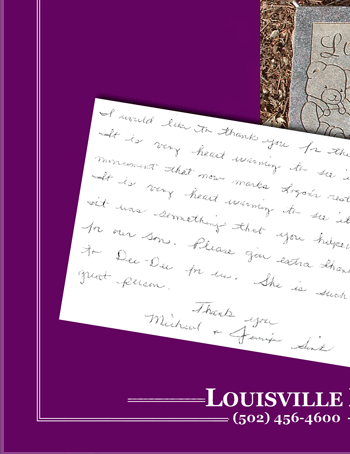 Lo
I would like to thank you for the
It is very heart warming to see i
monument that now marks Logan's rest
It is very heart warming to see it
it was something that you helped
for our son. Please give extra than
to Dee-Dee for us. She is such
great person.
Thank you
Michael & Jennifer Sink
LOUISVILLE
(502) 456-4600